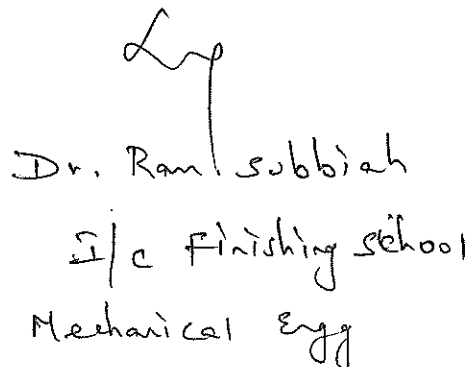 Dr. Ram Subbiah
I/c Finishing School
Mechanical Engg